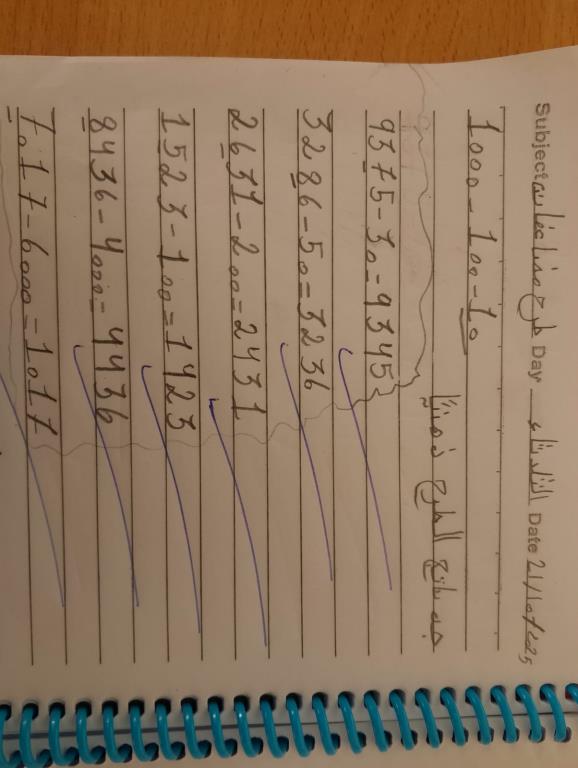 Subject طرح مضاعفات Day الثلاثاء Date 21/10/2025
1000-100-10
جد ناتج الطرح ذهنيًا
9375-30=9345
3286-50=3236
2631-200=2431
1523-100=1423
8436-4000=4436
7017-6000=1017